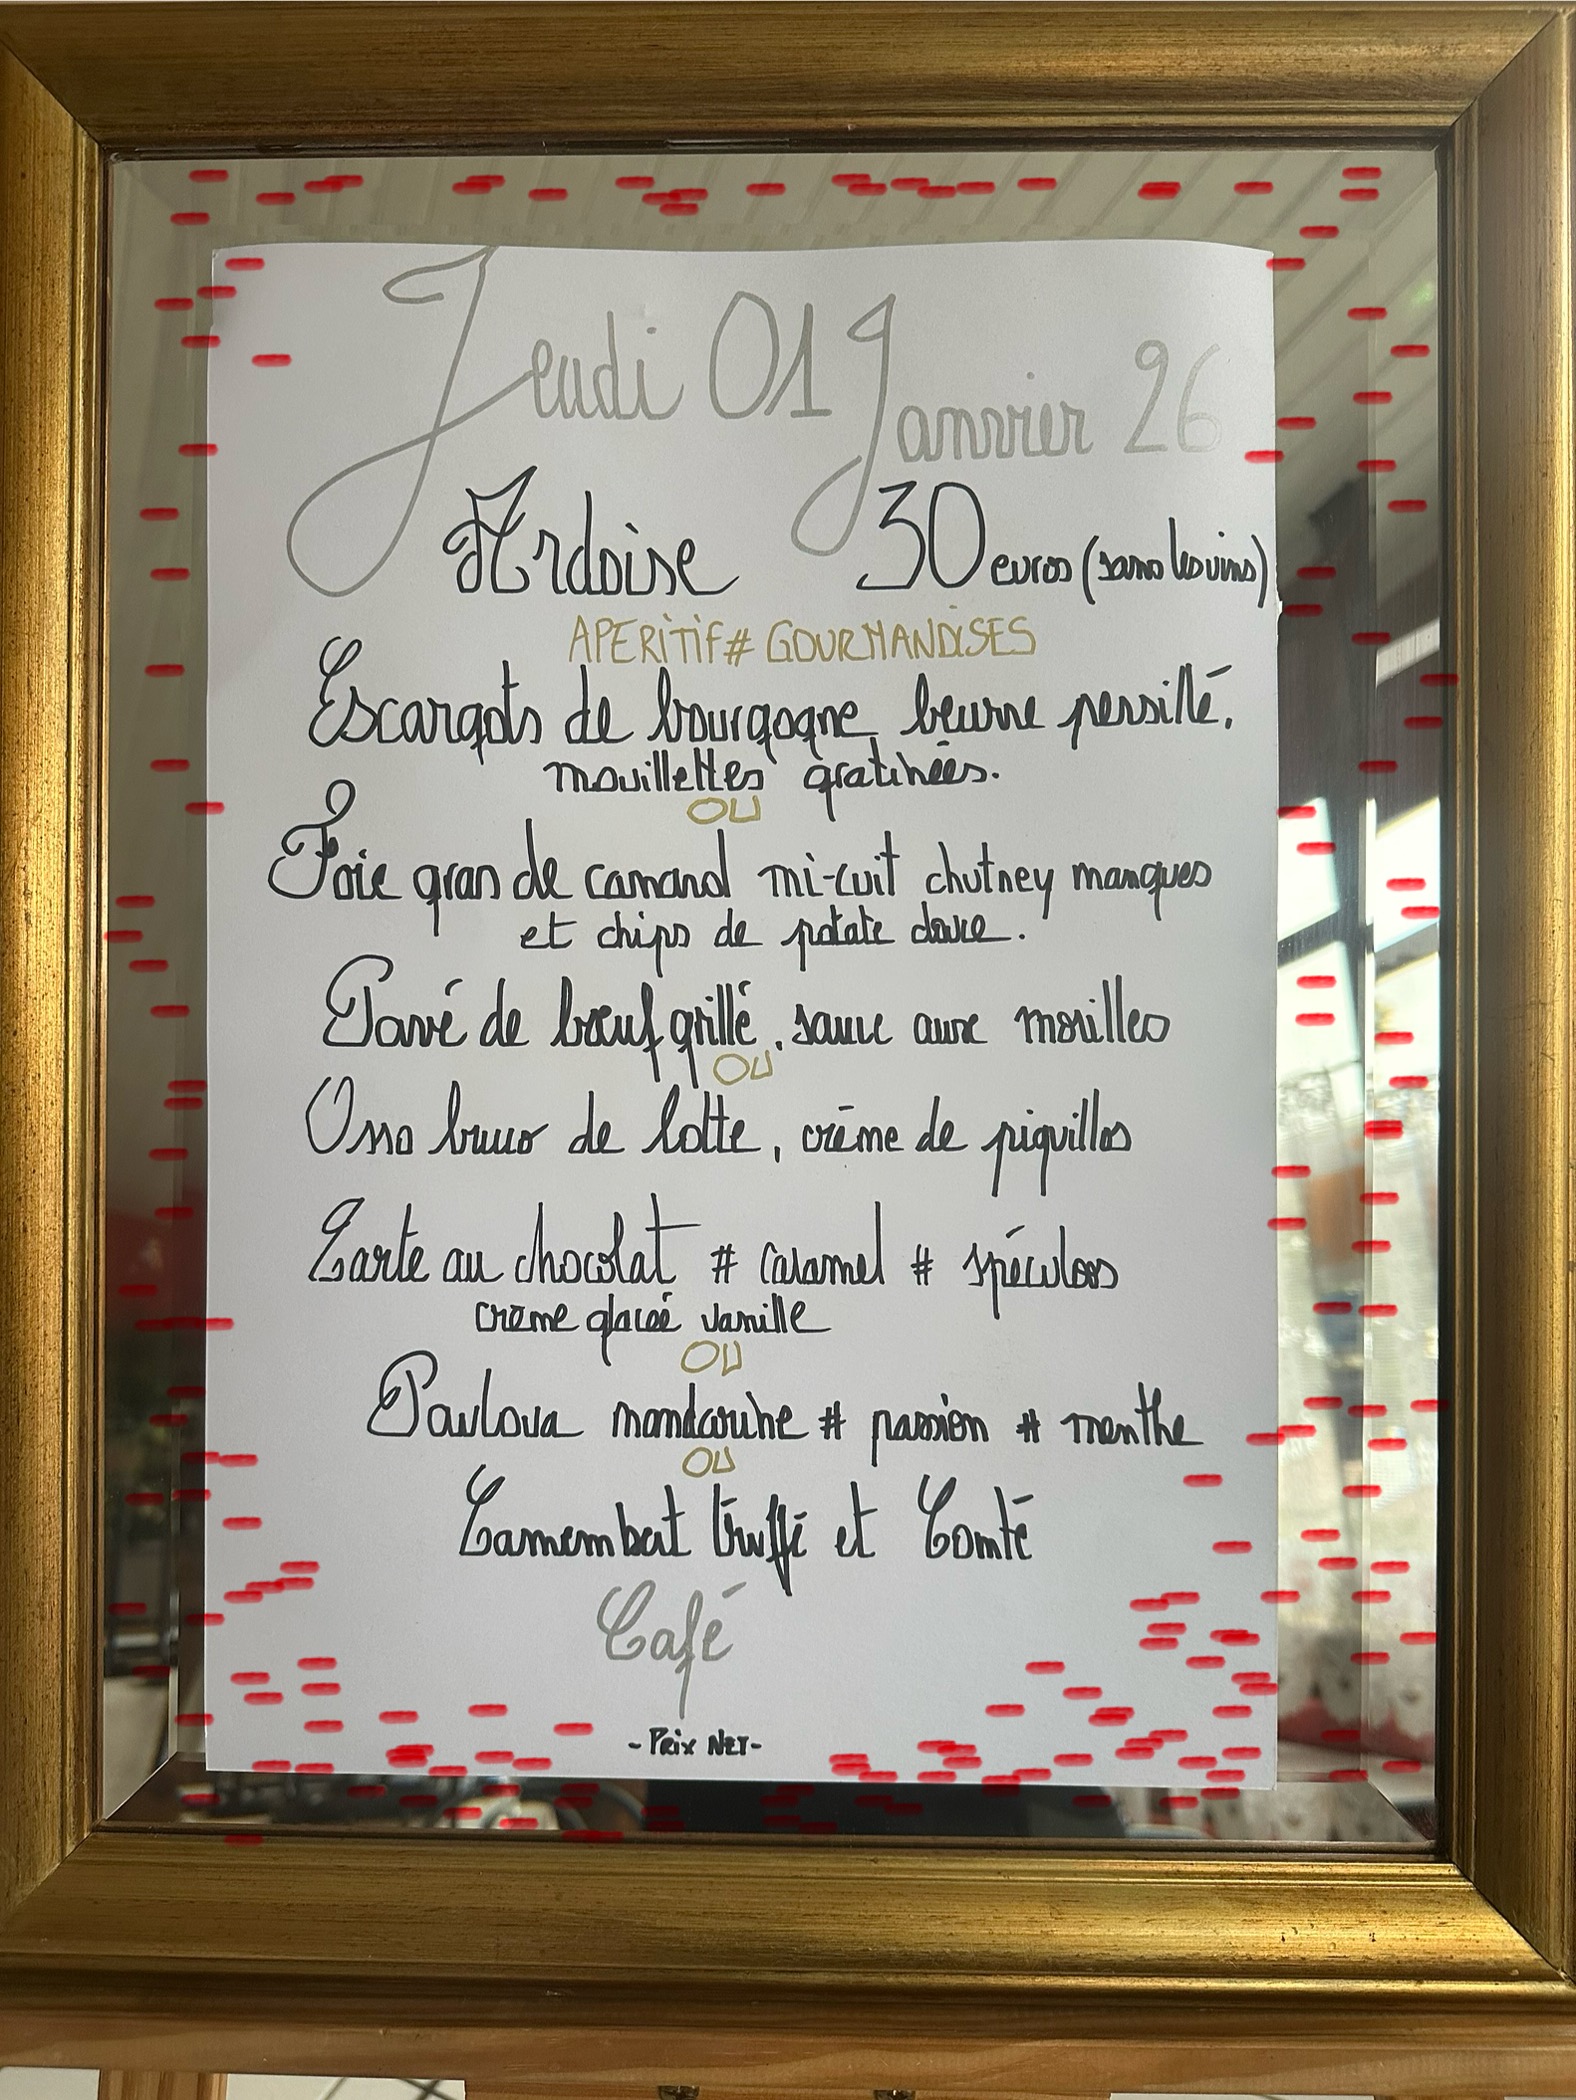 Jeudi 01 Janvier 26
Ardoise 30 euros (sans les vins)
APERITIF # GOURMANDISES
Escargots de bourgogne beurre persillé,
mouillettes gratinées.
OU
Foie gras de canard mi-cuit chutney mangues
et chips de patate douce.
Pavé de bœuf grillé, sauce aux morilles
OU
Osso bucco de lotte, crème de piquillos
Tarte au chocolat # caramel # spéculoos
crème glacée vanille
OU
Pavlova mandarine # passion # menthe
OU
Camembert truffé et Comté
Café
- Prix NET -